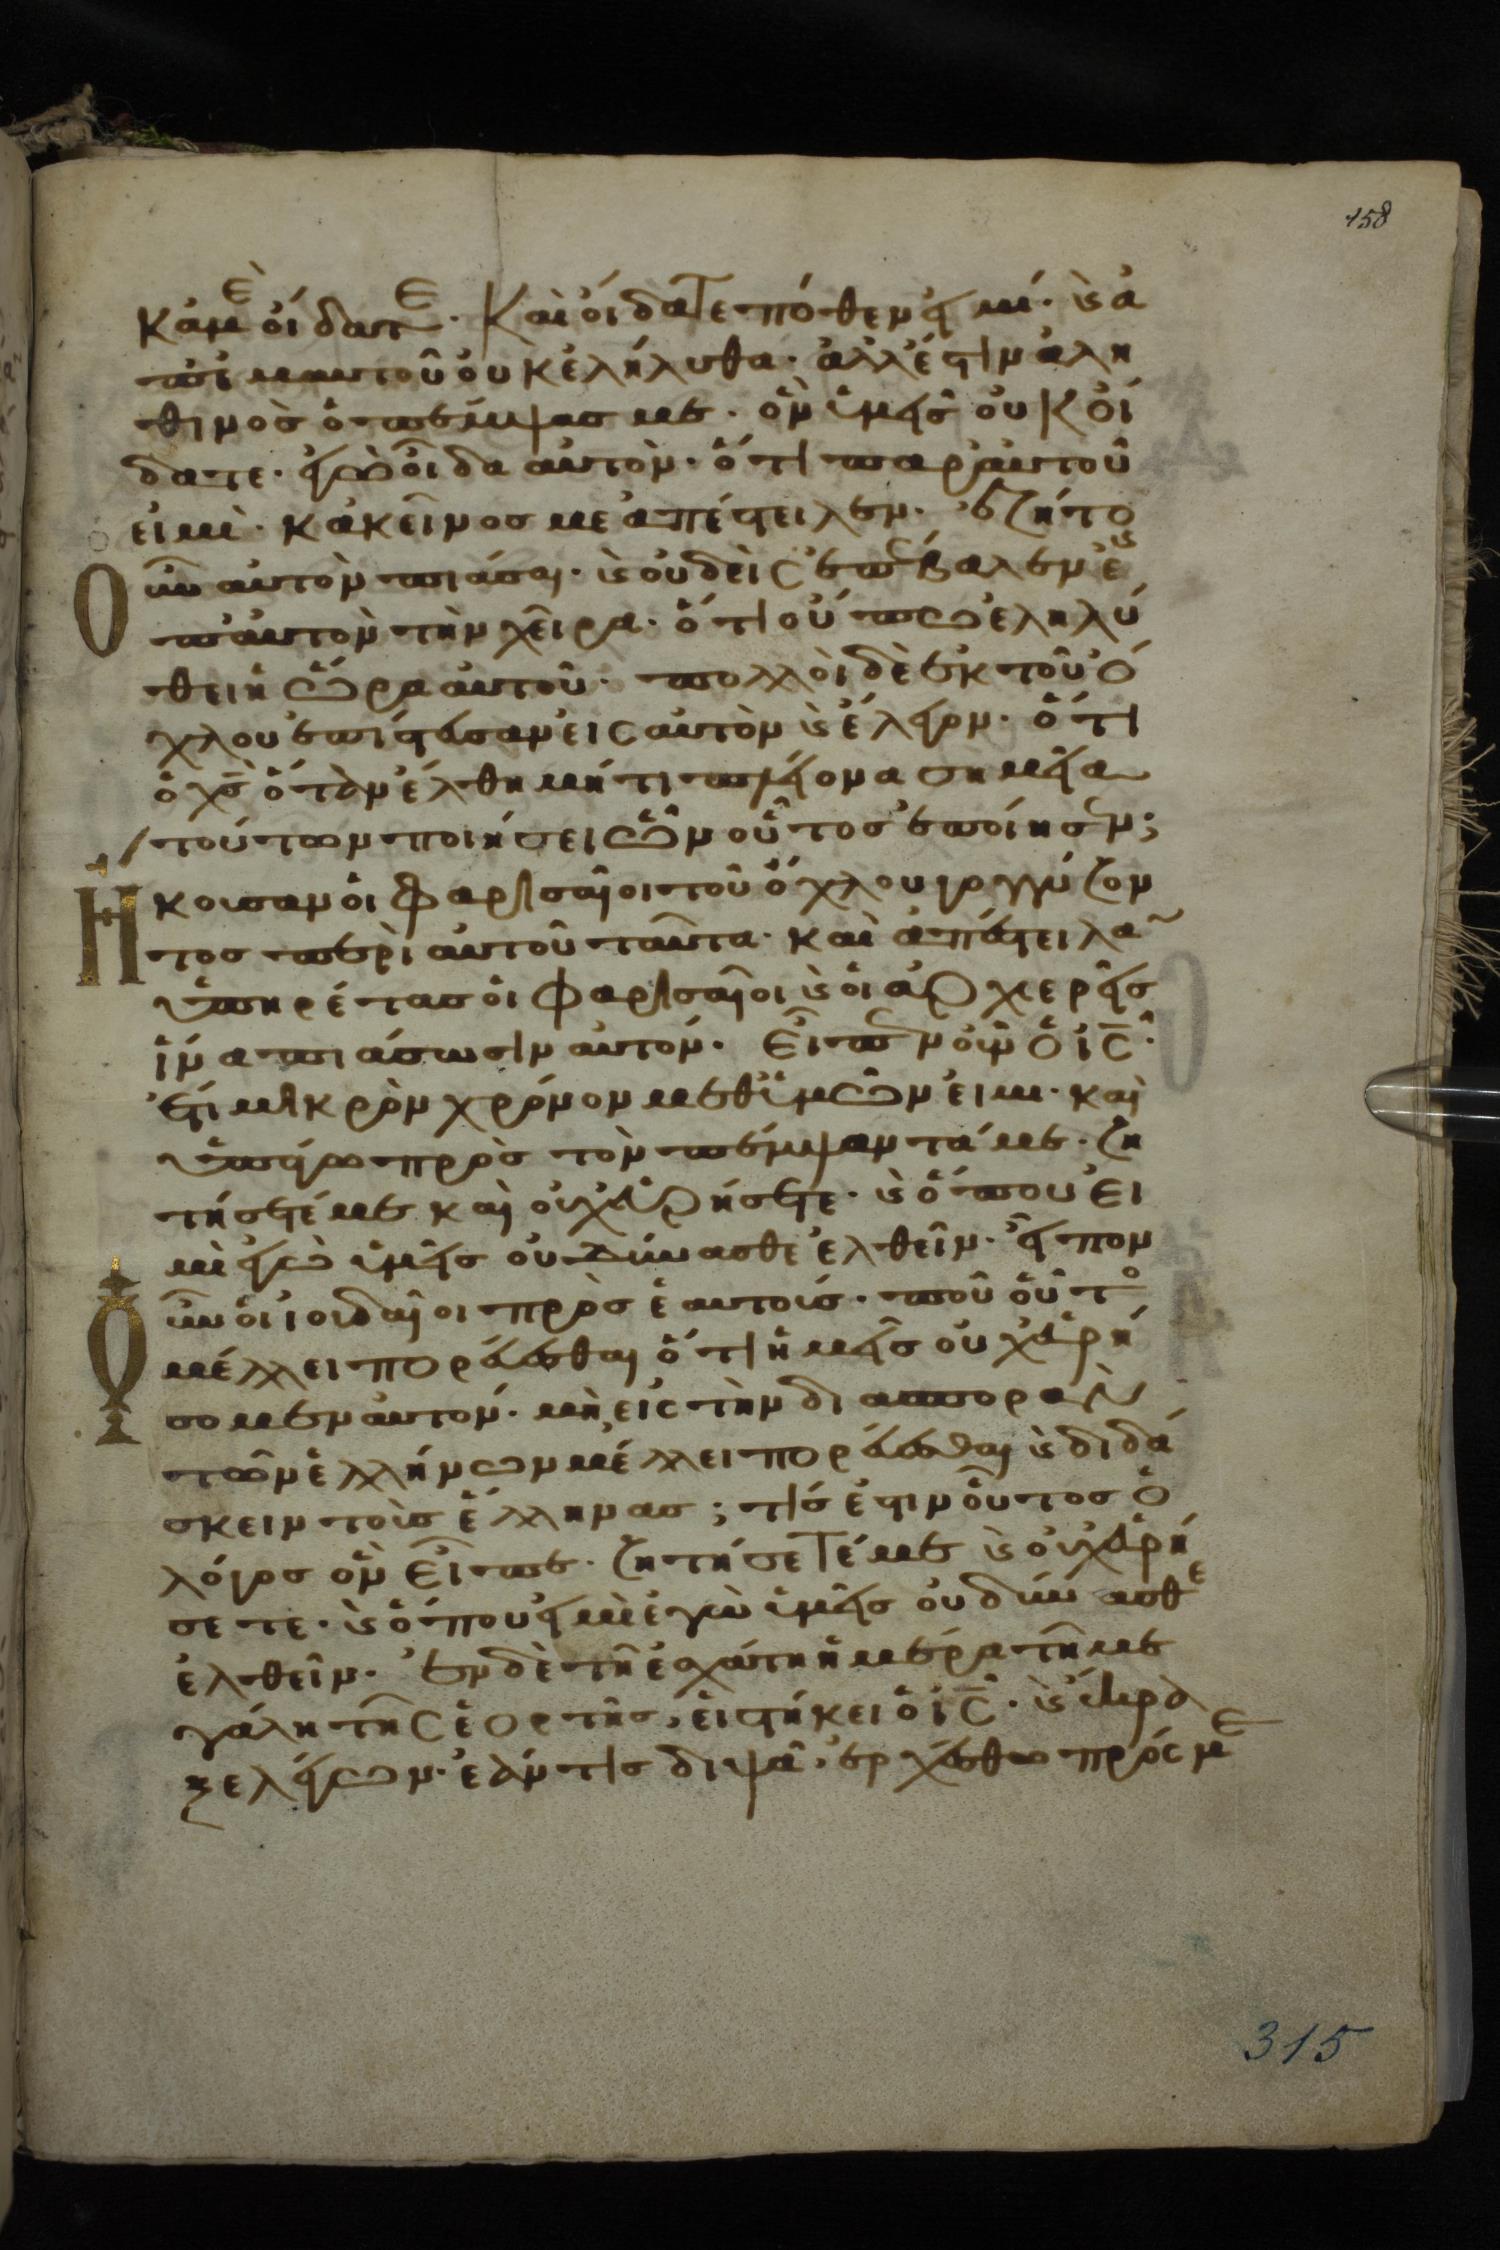 158
κἀμὲ οἴδατε· Καὶ οἴδατε πόθεν εἰμί· καὶ ἀ
π' ἐμαυτοῦ οὐκ ἐλήλυθα· ἀλλ' ἔστιν ἀλη
θινὸς ὁ πέμψας με· ὃν ὑμεῖς οὐκ οἴ
δατε· ἐγὼ οἶδα αὐτὸν· ὅτι παρ' αὐτοῦ
εἰμὶ· κἀκεῖνος με ἀπέστειλεν· ἐζήτο
υν αὐτὸν πιάσαι· καὶ οὐδεὶς ἐπέβαλεν ἐ
π' αὐτὸν τὴν χεῖρα· ὅτι οὔπω ἐληλύ
θει ἡ ὥρα αὐτοῦ· πολλοὶ δὲ ἐκ τοῦ ὄ
χλου ἐπίστευσαν εἰς αὐτὸν καὶ ἔλεγον· ὅτι
ὁ χς ὅταν ἔλθη μήτι πλείονα σημεῖα
τούτων ποιήσει ὧν οὗτος ἐποίησεν;
Ἤκουσαν οἱ Φαρισαῖοι τοῦ ὄχλου γογγύζον
τος περὶ αὐτοῦ ταῦτα· καὶ ἀπέστειλαν
ὑπηρέτας οἱ Φαρισαῖοι καὶ οἱ ἀρχιερεῖς
ἵνα πιάσωσιν αὐτόν· Εἶπεν οὖν ὁ ις·
ἔτι μικρὸν χρόνον μεθ' ὑμῶν εἰμι· καὶ
ὑπάγω πρὸς τὸν πέμψαντά με· ζη
τήσετέ με καὶ οὐχ εὑρήσετε· καὶ ὅπου εἰ
μὶ ἐγὼ ὑμεῖς οὐ δύνασθε ἐλθεῖν· εἶπον
οὖν οἱ ἰουδαῖοι πρὸς ἑαυτούς· ποῦ οὗτος
μέλλει πορεύεσθαι ὅτι ἡμεῖς οὐχ εὑρή
σομεν αὐτόν· μὴ εἰς τὴν διασπορὰν
τῶν ἑλλήνων μέλλει πορεύεσθαι καὶ διδά
σκειν τοὺς ἕλληνας; τίς ἐστιν οὗτος ὁ
λόγος ὃν εἶπε· ζητήσετέ με καὶ οὐχ εὑρή
σετε· καὶ ὅπου εἰμὶ ἐγὼ ὑμεῖς οὐ δύνασθε
ἐλθεῖν· ἐν δὲ τῆ ἐσχάτη ἡμέρα τῆ με
γάλη τῆς ἑορτῆς, εἱστήκει ὁ ις· καὶ ἔκρα
ξε λέγων· ἐάν τις διψᾶ, ἐρχέσθω πρός με
315